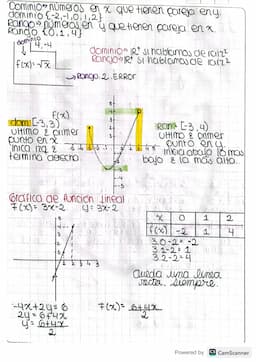 Dominio = números en x que tienen pareja en y.
dominio {-2,-1,0,1,2}
Rango = números en y que tienen pareja en x.
Rango {0,1,4}
dominio
4,-4
f(x)=√x
dominio = R⁺ si hablamos de raíz
Rango = R⁺ si hablamos de raíz
Rango 2. ERROR
f(x)
dom [-3,3)
ultimo & primer
punto en x
termina derecha
Ran [-3,4)
ultimo & primer
punto en y
bajo & la mas alta.
Gráfica de función lineal
f(x)= 3x-2 y=3x-2
x 0 1 2
f(x) -2 1 4
3·0-2=-2
3·1-2=1
3·2-2=4
Queda una línea
recta, siempre.
-4x+2y=6
2y=6+4x
y=6+4x
2
f(x)=6+4x
2
Powered by CamScanner